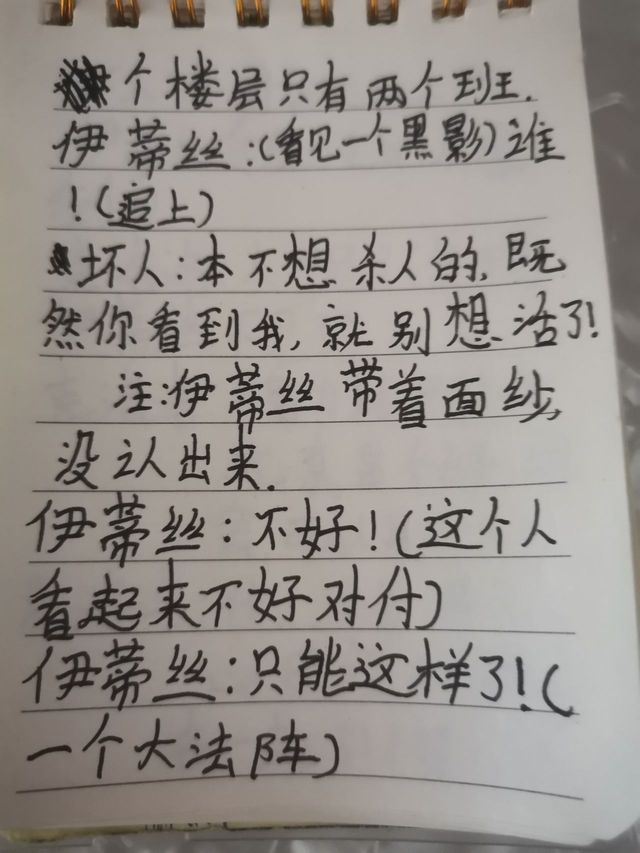 个楼层只有两个班.
伊蒂丝:(看见一个黑影)谁
!(追上)
坏人:本不想杀人的,既
然你看到我,就别想活了!
注:伊蒂丝带着面纱,
没认出来.
伊蒂丝:不好!(这个人
看起来不好对付)
伊蒂丝:只能这样了!(
一个大法阵)